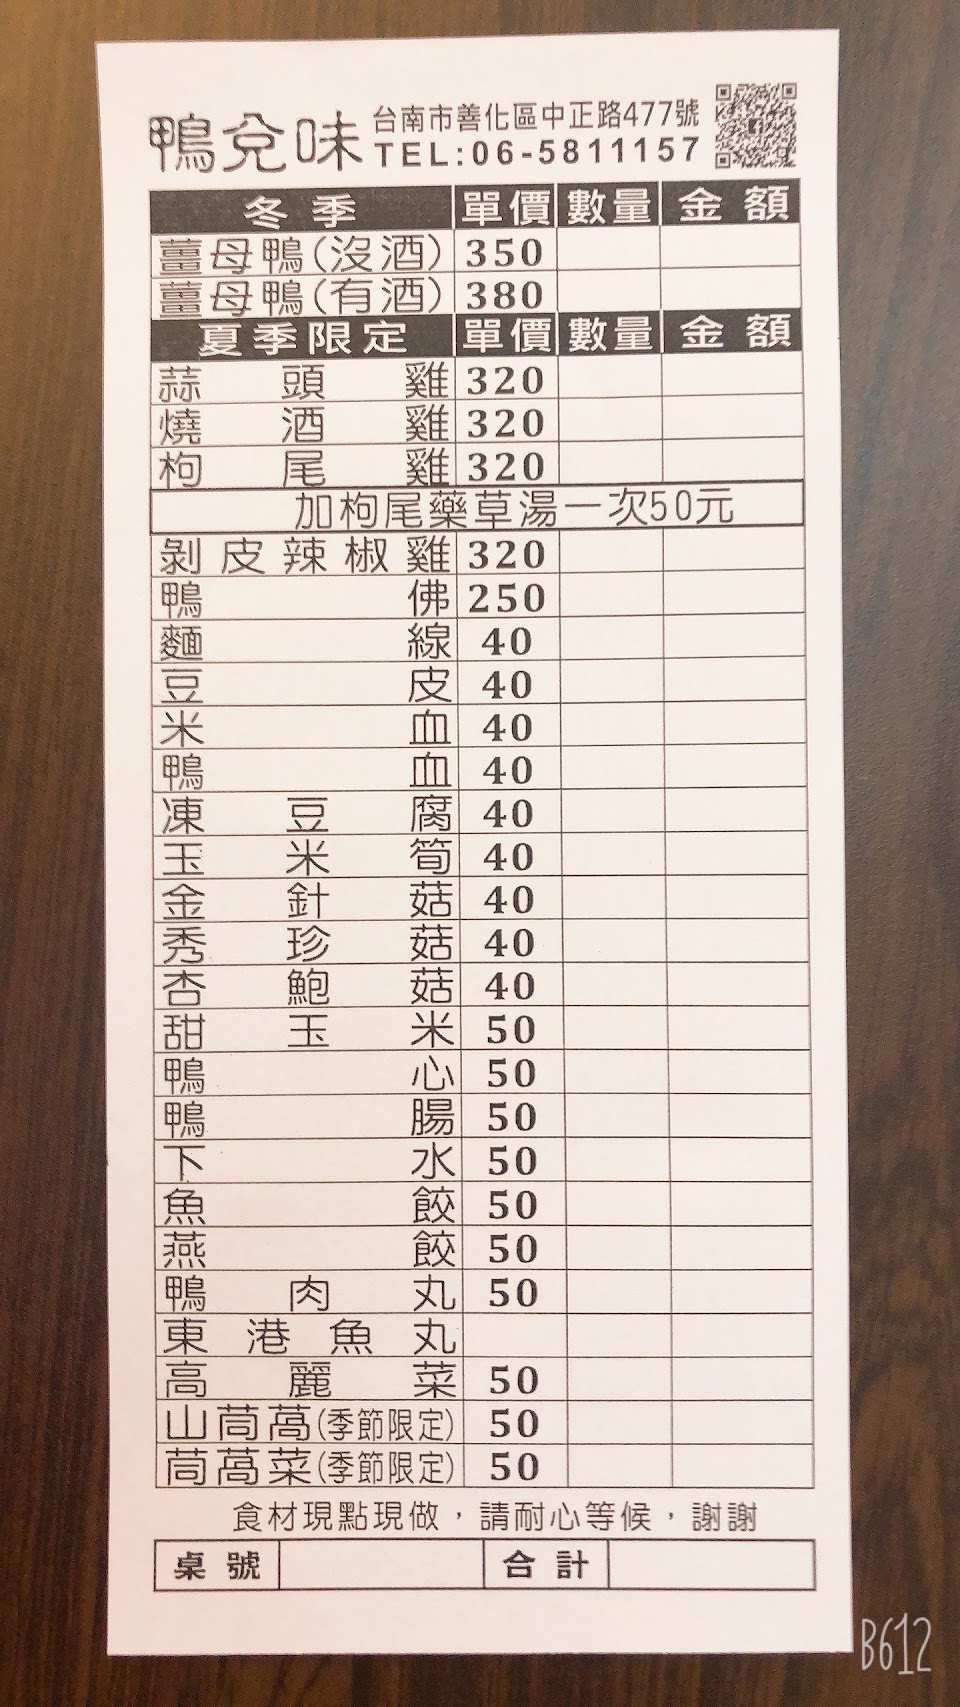 鴨兌味
台南市善化區中正路477號
TEL:06-5811157
冬季 單價 數量 金額
薑母鴨(沒酒) 350
薑母鴨(有酒) 380
夏季限定 單價 數量 金額
蒜頭雞 320
燒酒雞 320
枸尾雞 320
加枸尾藥草湯一次50元
剝皮辣椒雞 320
鴨佛 250
麵線 40
豆皮 40
米血 40
鴨血 40
凍豆腐 40
玉米筍 40
金針菇 40
秀珍菇 40
杏鮑菇 40
甜玉米 50
鴨心 50
鴨腸 50
下水 50
魚餃 50
燕餃 50
鴨肉丸 50
東港魚丸
高麗菜 50
山茼萵(季節限定) 50
茼萵菜(季節限定) 50
食材現點現做，請耐心等候，謝謝
桌號 合計
B612